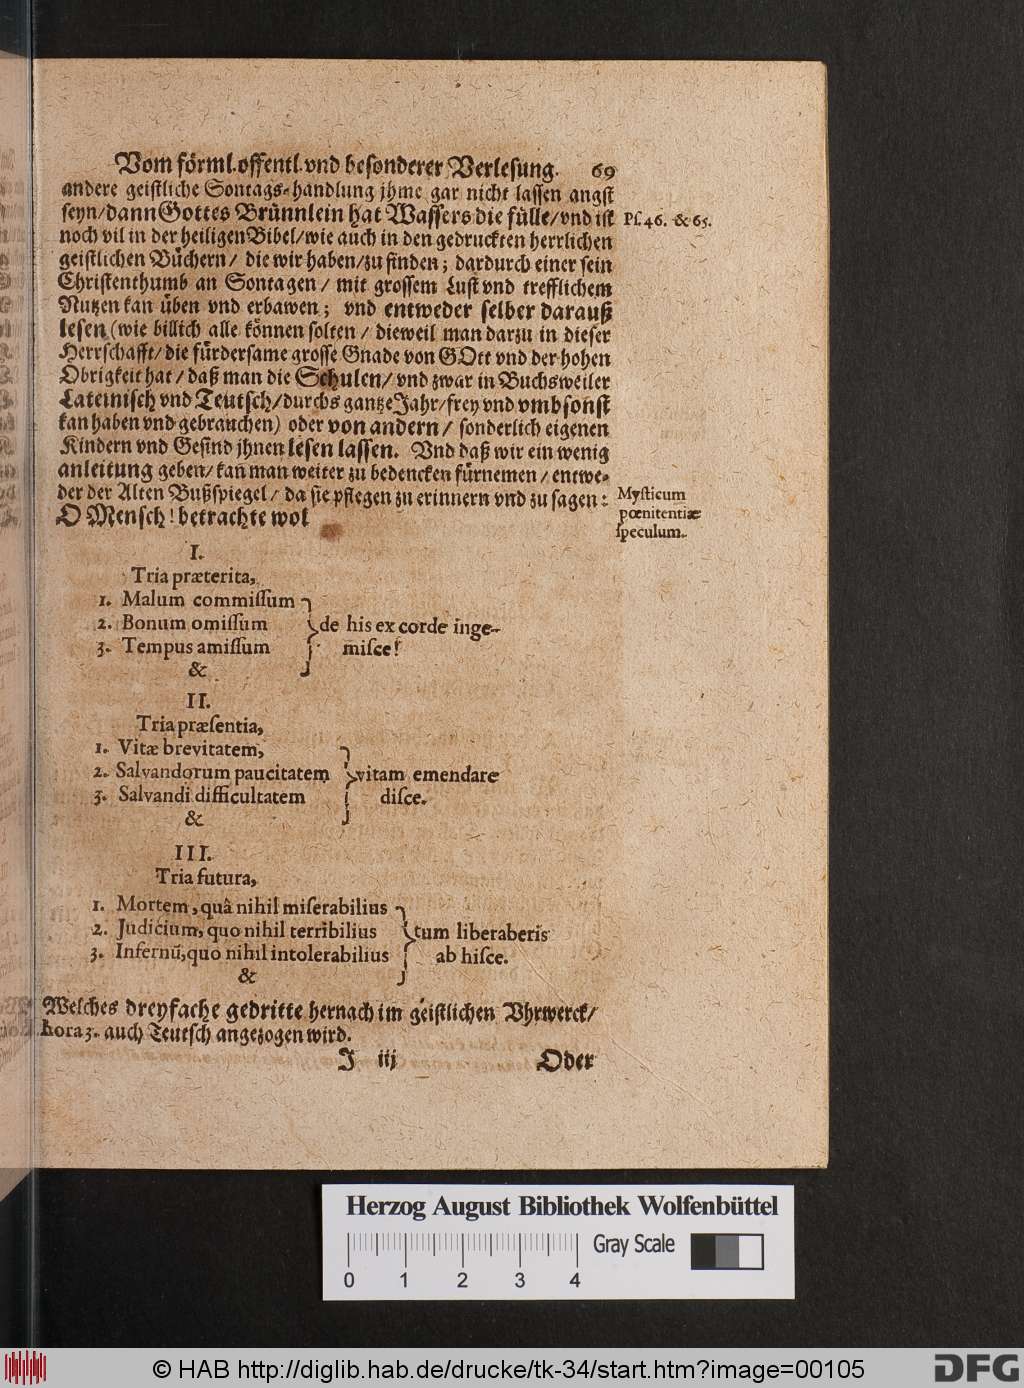 Vom förml. offentl. vnd besonderer Verlesung. 69
andere geistliche Sontags-handlung jhme gar nicht lassen angst
seyn/ dann Gottes Brünnlein hat Wassers die fülle/ vnd ist
Ps. 46. & 65.
noch vil in der heiligen Bibel/ wie auch in den gedruckten herrlichen
geistlichen Büchern/ die wir haben/ zu finden; dardurch einer sein
Christenthumb an Sontagen/ mit grossem Lust vnd trefflichem
Nutzen kan üben vnd erbawen; vnd entweder selber darauß
lesen (wie billich alle können solten/ dieweil man darzu in dieser
Herrschafft/ die fürdersame grosse Gnade von GOtt vnd der hohen
Obrigkeit hat/ daß man die Schulen/ vnd zwar in Buchsweiler
Lateinisch vnd Teutsch/ durchs gantze Jahr/ frey vnd vmbsonst
kan haben vnd gebrauchen) oder von andern/ sonderlich eigenen
Kindern vnd Gesind jhnen lesen lassen. Vnd daß wir ein wenig
anleitung geben/ kan̄ man weiter zu bedencken fürnemen/ entwe-
der der Alten Bußspiegel/ da sie pflegen zu erinnern vnd zu sagen:
O Mensch! betrachte wol
Mysticum
pœnitentiæ
speculum.
I.
Tria præterita,
1. Malum commissum
2. Bonum omissum
3. Tempus amissum
&
de his ex corde inge-
misce!
II.
Tria præsentia,
1. Vitæ brevitatem,
2. Salvandorum paucitatem
3. Salvandi difficultatem
&
vitam emendare
disce.
III.
Tria futura,
1. Mortem, quâ nihil miserabilius
2. Judicium, quo nihil terribilius
3. Infernū, quo nihil intolerabilius
&
tum liberaberis
ab hisce.
Welches dreyfache gedritte hernach im geistlichen Vhrwerck/
hora 3. auch Teutsch angezogen wird.
J iij Oder
Herzog August Bibliothek Wolfenbüttel
0 1 2 3 4
Gray Scale
© HAB http://diglib.hab.de/drucke/tk-34/start.htm?image=00105
DFG